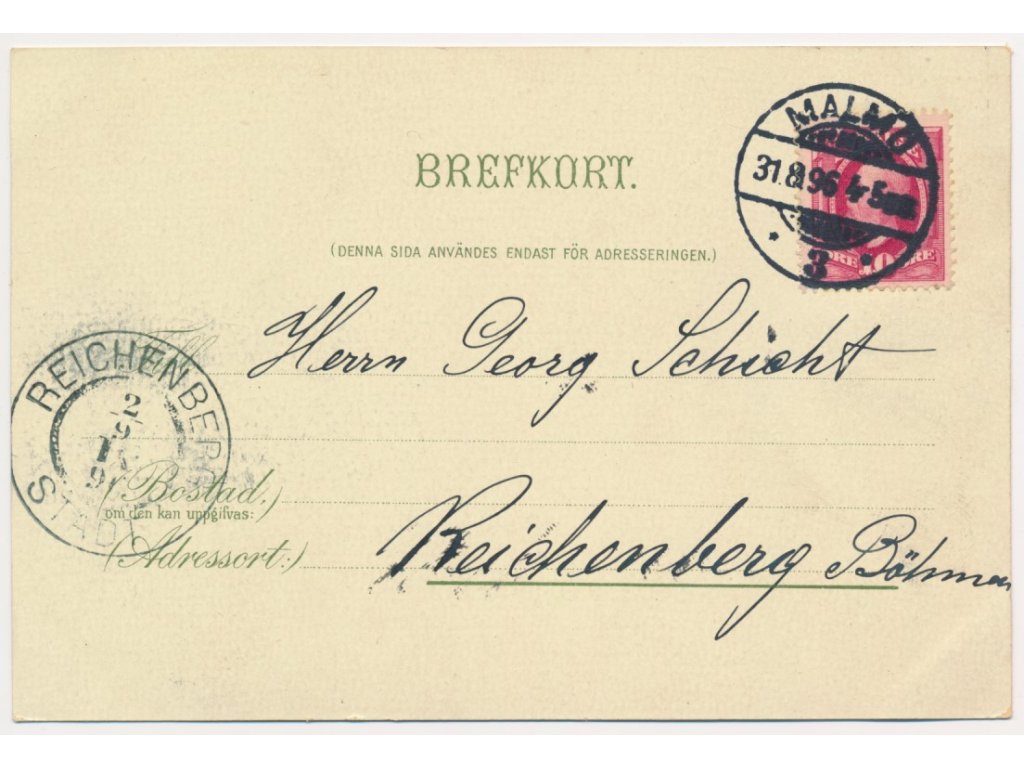 BREFKORT.
MALMÖ
31.8.96 4-5
3
ÖRE 10 ÖRE
(DENNA SIDA ANVÄNDES ENDAST FÖR ADRESSERINGEN.)
Till
Herrn Georg Schicht
REICHENBERG
2
9
STADT
(Bostad,)
om den kan uppgifvas:
(Adressort:)
Reichenberg Böhmen